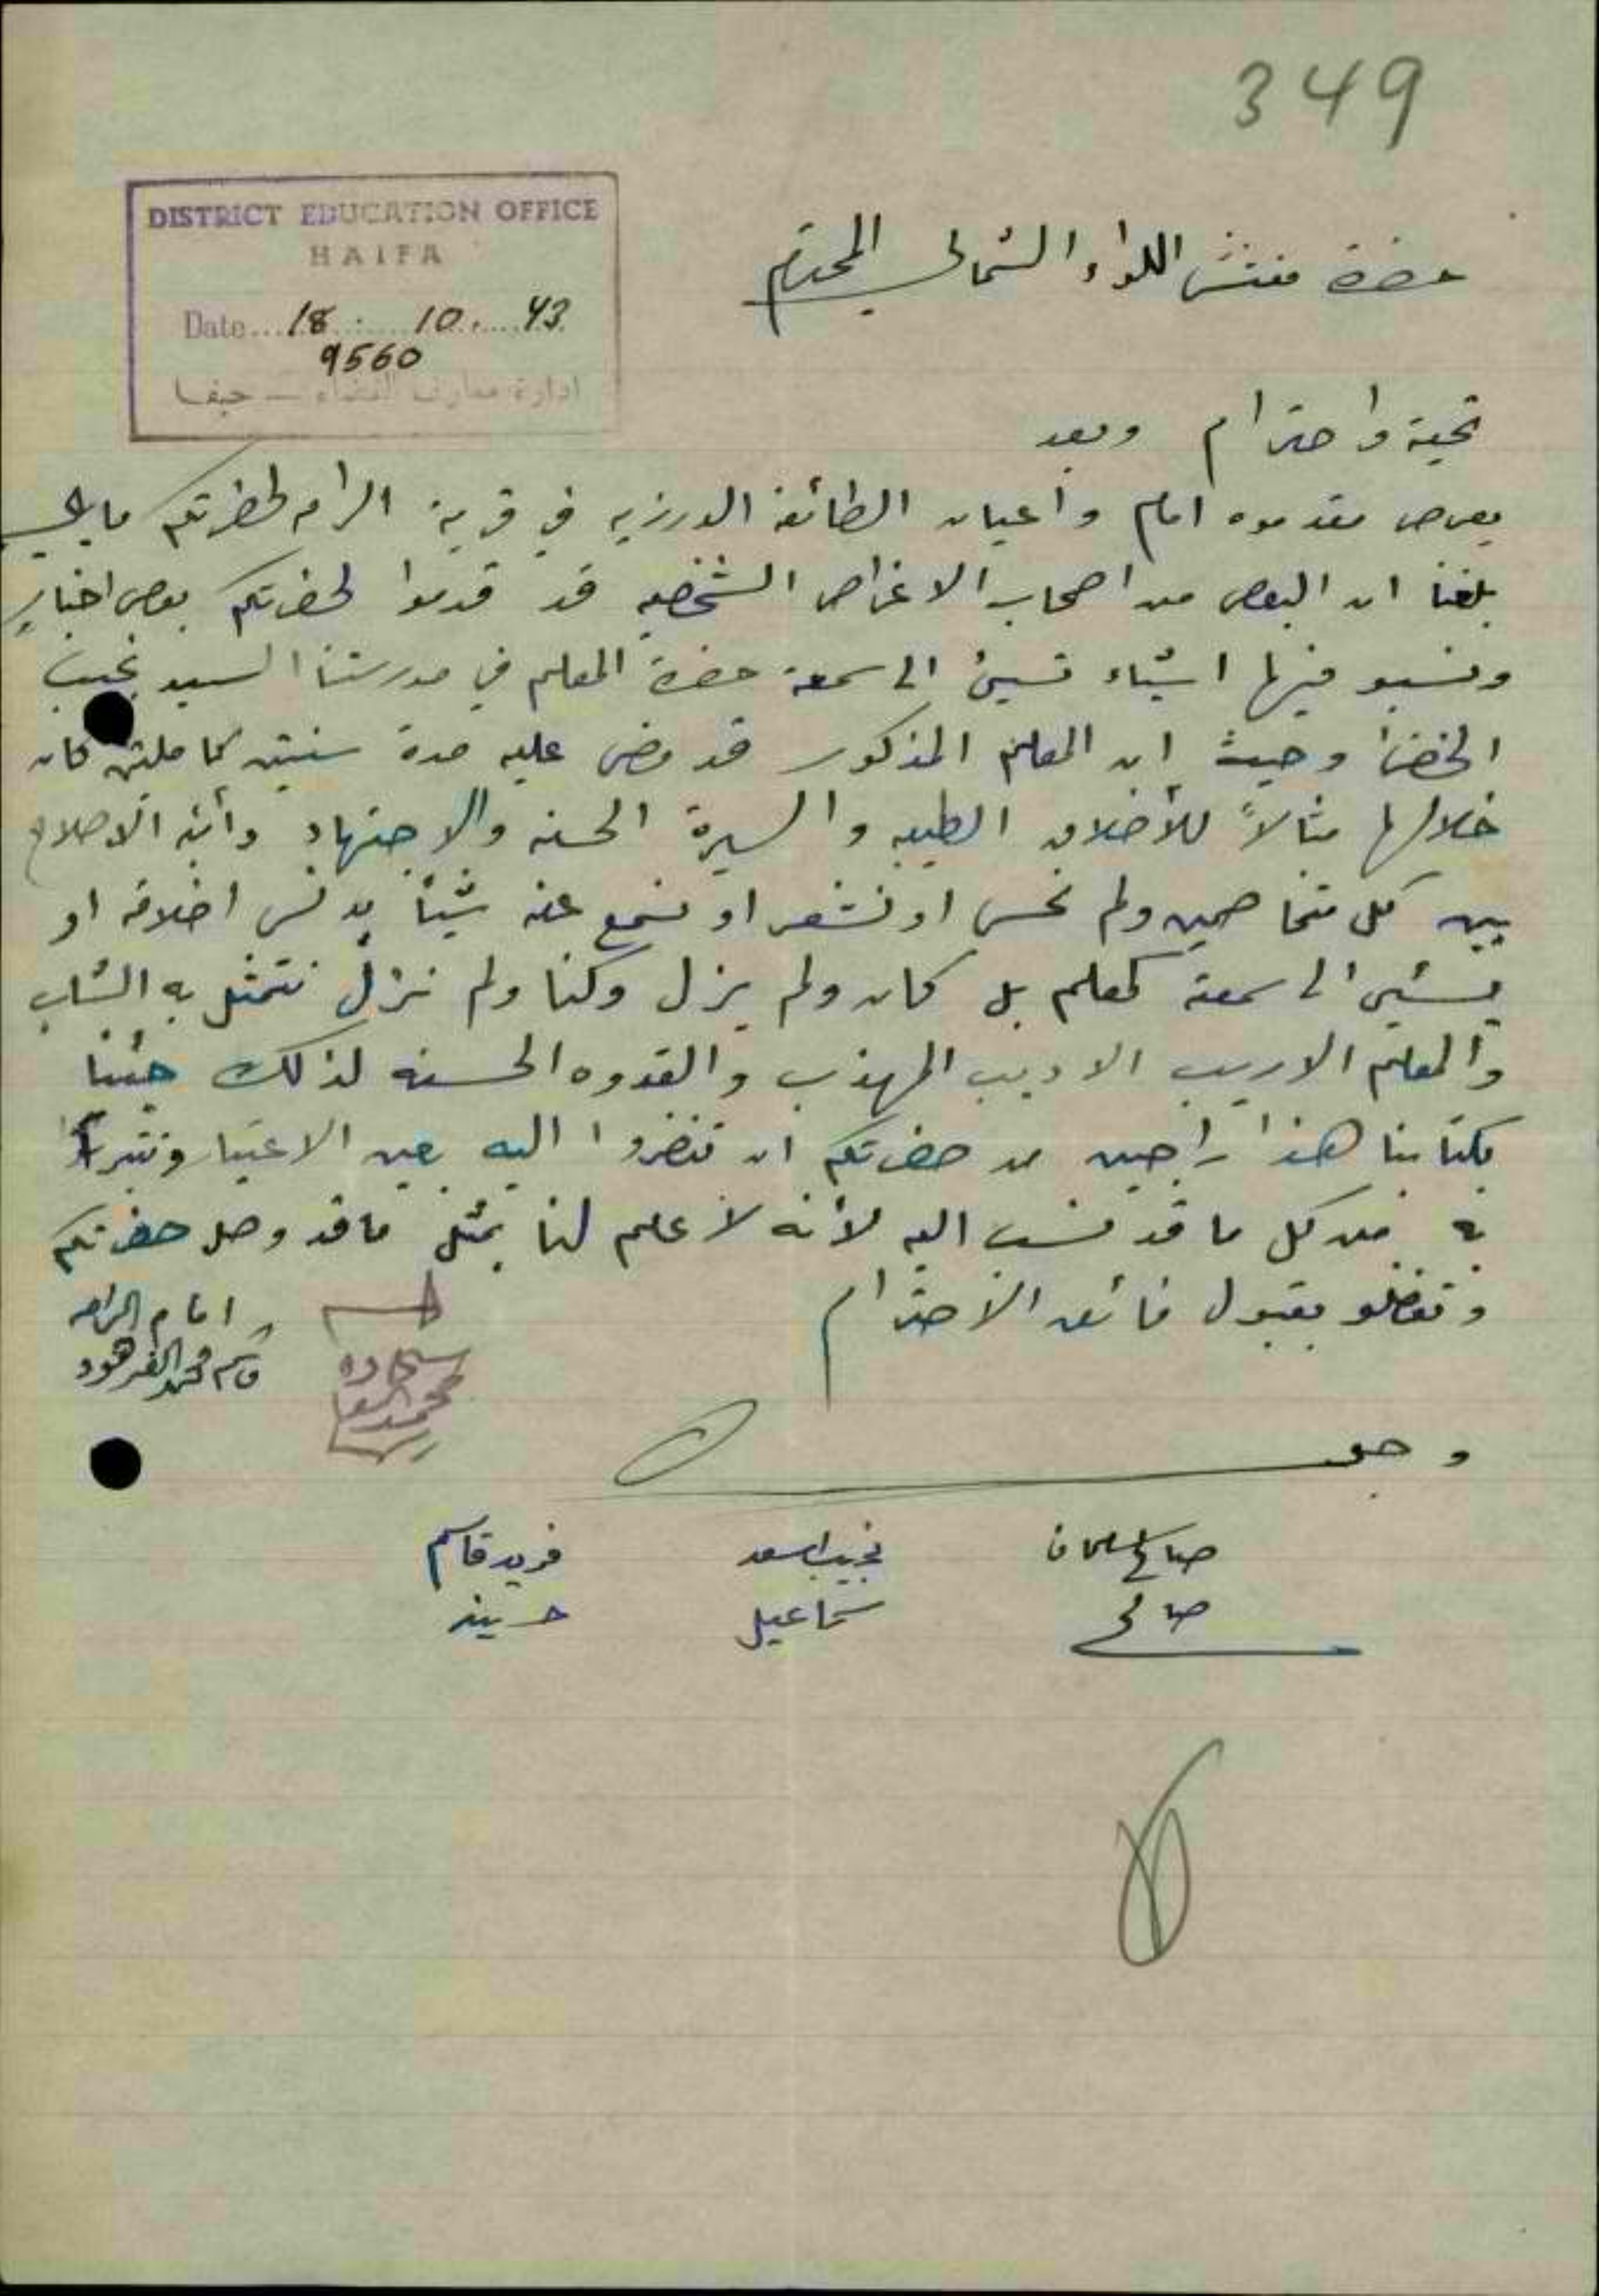 349
DISTRICT EDUCATION OFFICE
HAIFA
Date... 18. 10. 43
9560
ادارة معارف القضاء — حيفا
حضرة مفتش اللواء الشمالي المحترم
تحية واحترام وبعد
يعرض مقدموه امام وأعيان الطائفة الدرزيه في قرية الرامه لحضرتكم ما يلي
بلغنا ان البعض من اصحاب الاغراض الشخصيه قد قدموا لحضرتكم بعض اخبار
ونسبو فيها اشياء تسيئ الى سمعة حضرة المعلم في مدرستنا السيد نجيب
وحيث ان المعلم المذكور قد مضى عليه مدة سنتين كاملتين كان
خلالها مثالاً للأخلاق الطيبه والسيرة الحسنه والاجتهاد الاصلاح
بين كل متخاصمين ولم نحس او نشعر او نسمع عنه شيئاً يدنس اخلاقه او
يسئي الى سمعته كمعلم بل كان ولم يزل وكنا ولم نزل نتمثل به الشاب
والمعلم الاريب الاديب المهذب والقدوه الحسنه لذلك جئنا
بكتابنا هذا راجين من حضرتكم ان تنضروا اليه بعين الاعتبار
به من كل ما قد نسب اليه لأنه لا علم لنا بمثل ما قد وصل حضرتكم
وتفضلو بقبول فائق الاحترام
امام الرامه
قاسم محمد الفرهود
صالح سلمان
نجيب اسعد
فريد قاسم
صالح
سماعيل
حسين